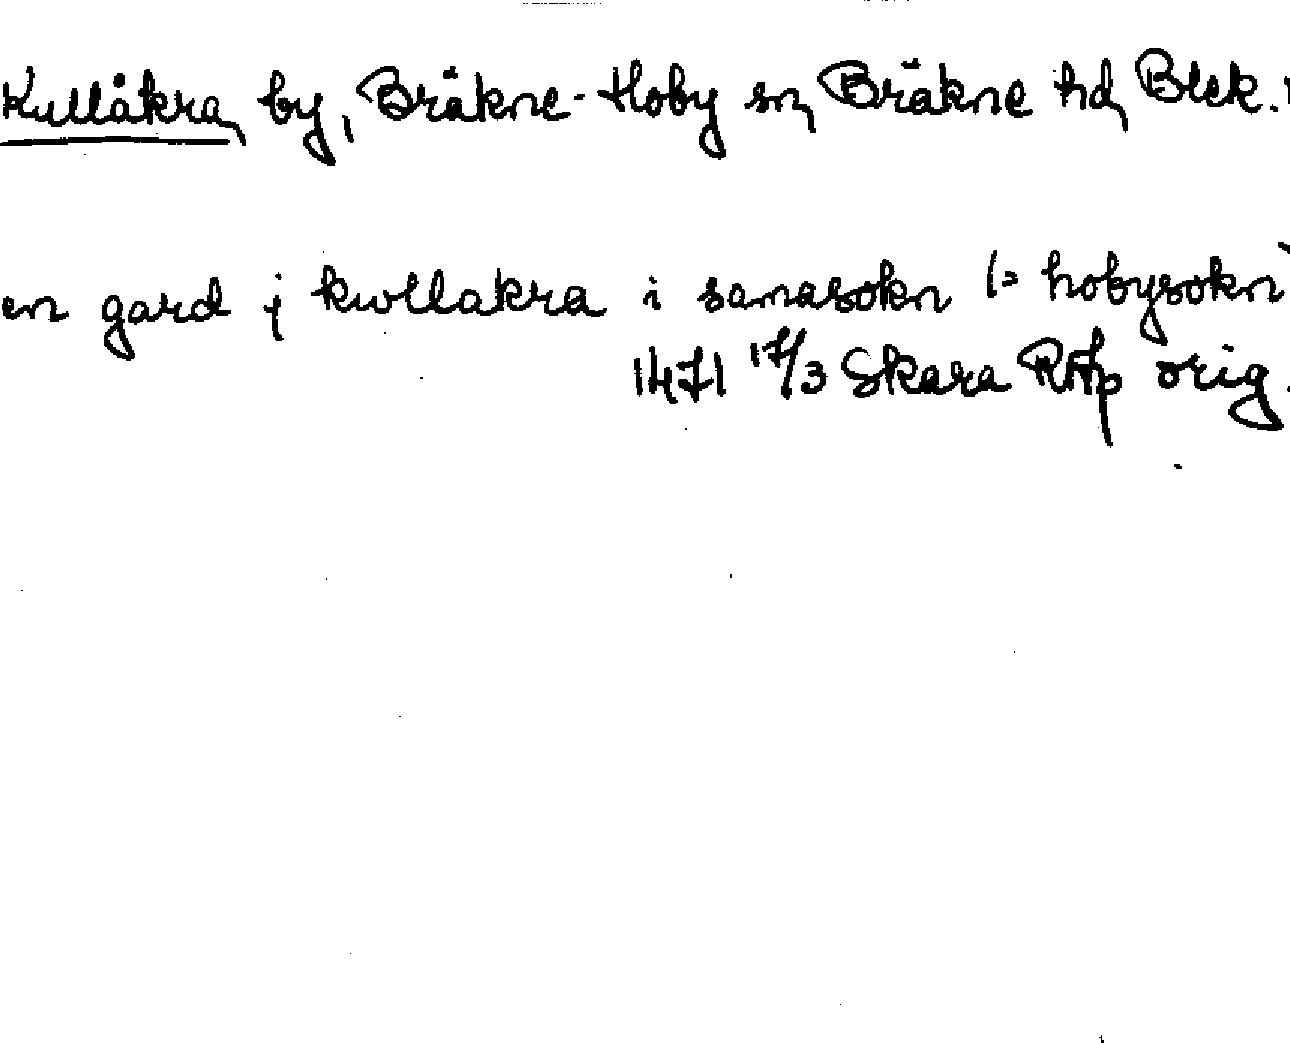 Kullåkra, by, Bräkne-Hoby sn, Bräkne hd, Blek.
en gard j kwllakra i samasokn (= hobysokn
1471 17/3 Skara RAp orig.